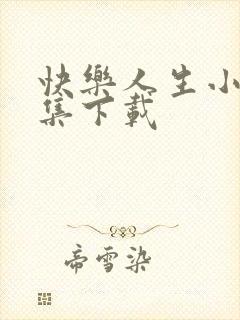 快樂人生小
集下載
帝雪染